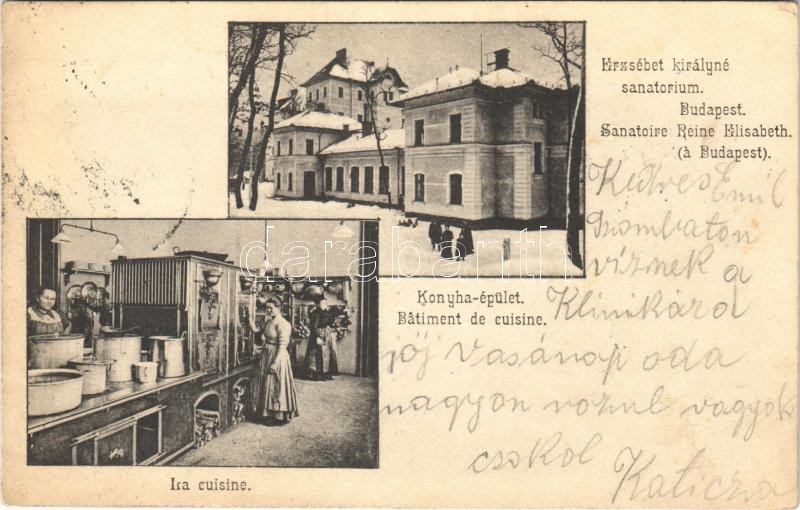 Erzsébet királyné
sanatorium.
Budapest.
Sanatoire Reine Elisabeth.
(à Budapest).
Konyha-épület.
Bâtiment de cuisine.
La cuisine.
Kedves Emil
Szombaton
visznek a
Klinikára
jöj vasánap oda
nagyon roszul vagyok
csokol
Katicza
darabanth